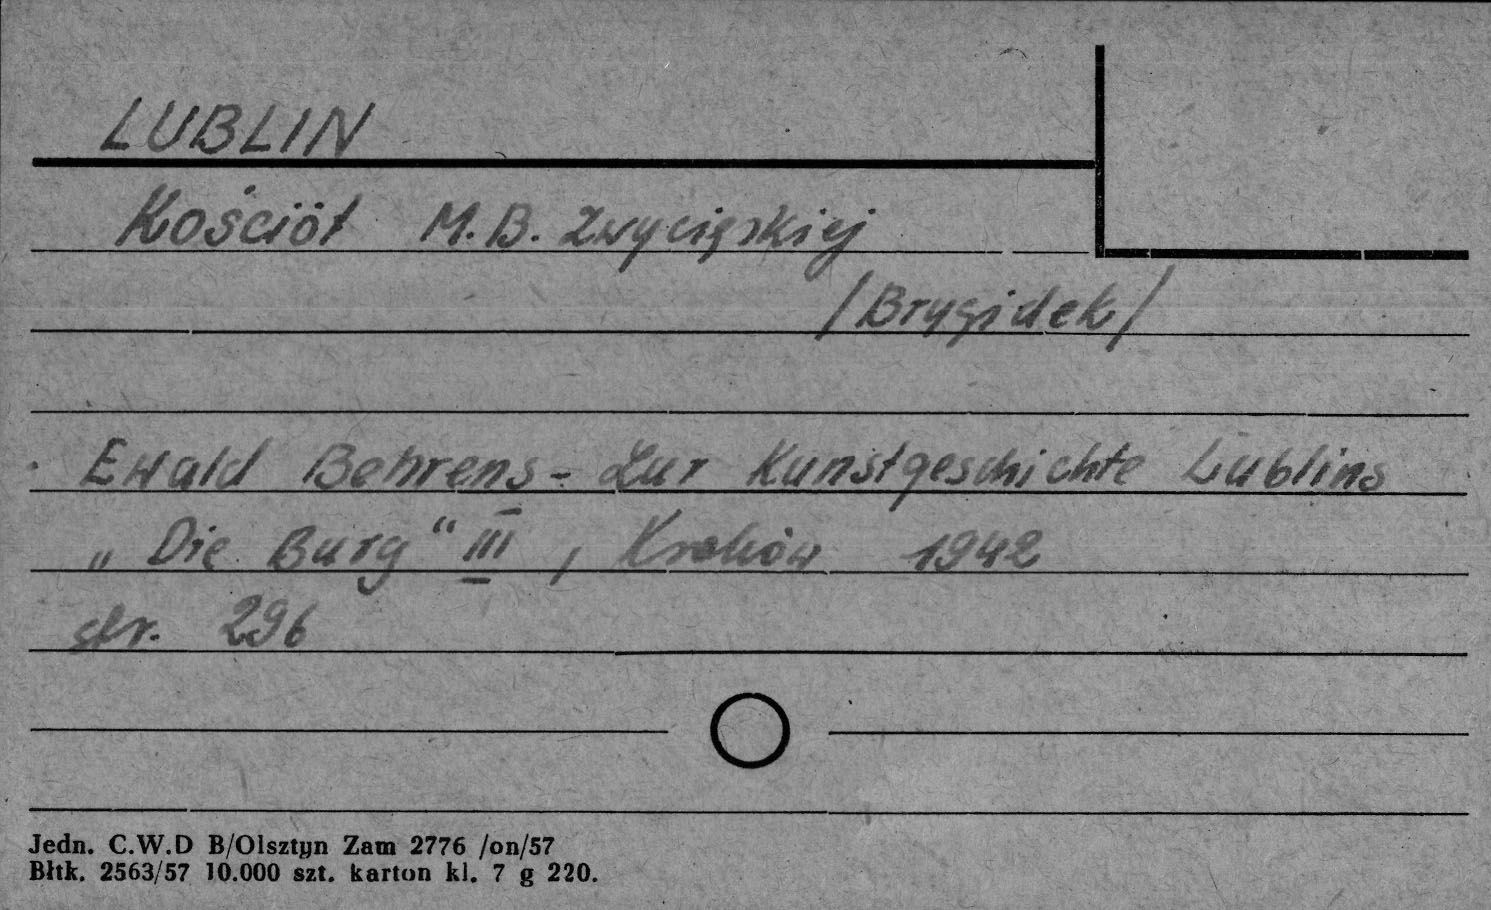 LUBLIN
Kościół M.B. Zwycięskiej
/Brygidek/
Ewald Behrens - Zur Kunstgeschichte Lublins
„Die Burg“ III, Kraków 1942
str. 296
Jedn. C.W.D B/Olsztyn Zam 2776 /on/57
Błtk. 2563/57 10.000 szt. karton kl. 7 g 220.